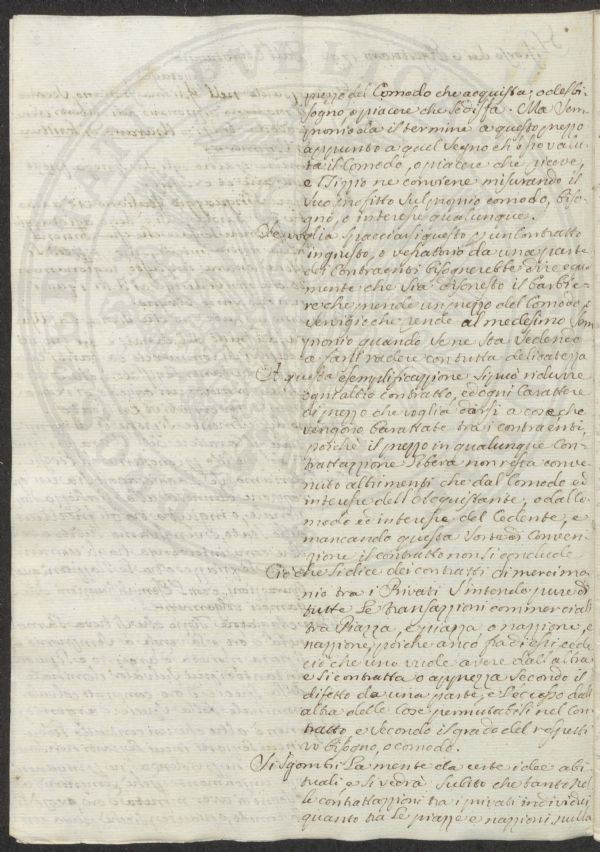 prezzo del Comodo che acquista, o del bi-
sogno, o piacere che sodisfa. Ma Sem-
pronio da il termine a questo prezzo
appunto a quel segno ch'esso valu-
ta il Comodo, o piacere che riceve,
e Tizio ne conviene misurando il
suo profitto sul proprio comodo, biso-
gno, o interesse qualunque.
Se voglia spacciarsi questo p. un Contratto
ingiusto, o vessatorio da una parte
dei Contraenti bisognerebbe dire egual-
mente che sia disonesto il Barbie-
re che prende un prezzo del Comodo, e
servigio che rende al medesimo Sem-
pronio quando se ne sta sedendo
a farsi radere con tutta delicatezza
A questa esemplificazione si può ridurre
ogn'altro contratto, ed ogni Carattere
di prezzo che voglia darsi a cose che
vengono barattate tra i contraenti,
poiche il prezzo in qualunque Con-
trattazione libera non resta conve-
nuto altrimenti che dal Comodo ed
interesse dell'Acquistante, o dal Co-
modo ed interesse del Cedente, e
mancando questa sorte di Conven-
zione il contratto non si conclude
Ciò che si dice dei contratti di mercimo-
nio tra i Privati s'intende pure di
tutte le transazioni commerciali
tra Piazza, e piazza o nazione, e
nazione, poiche anco fra di essi cede
ciò che uno vuole avere dall'altra
e si contratta o apprezza secondo il
difetto da una parte, e l'eccesso dall'
altra delle Cose permutabili nel Con-
tratto, e secondo il grado del rispetti-
vo bisogno, o comodo.
Si sgombri la mente da certe idee abi-
tuali e si vedrà subito che tanto nel-
le contrattazioni tra i privati individui
quanto tra le piazze e nazioni, nulla